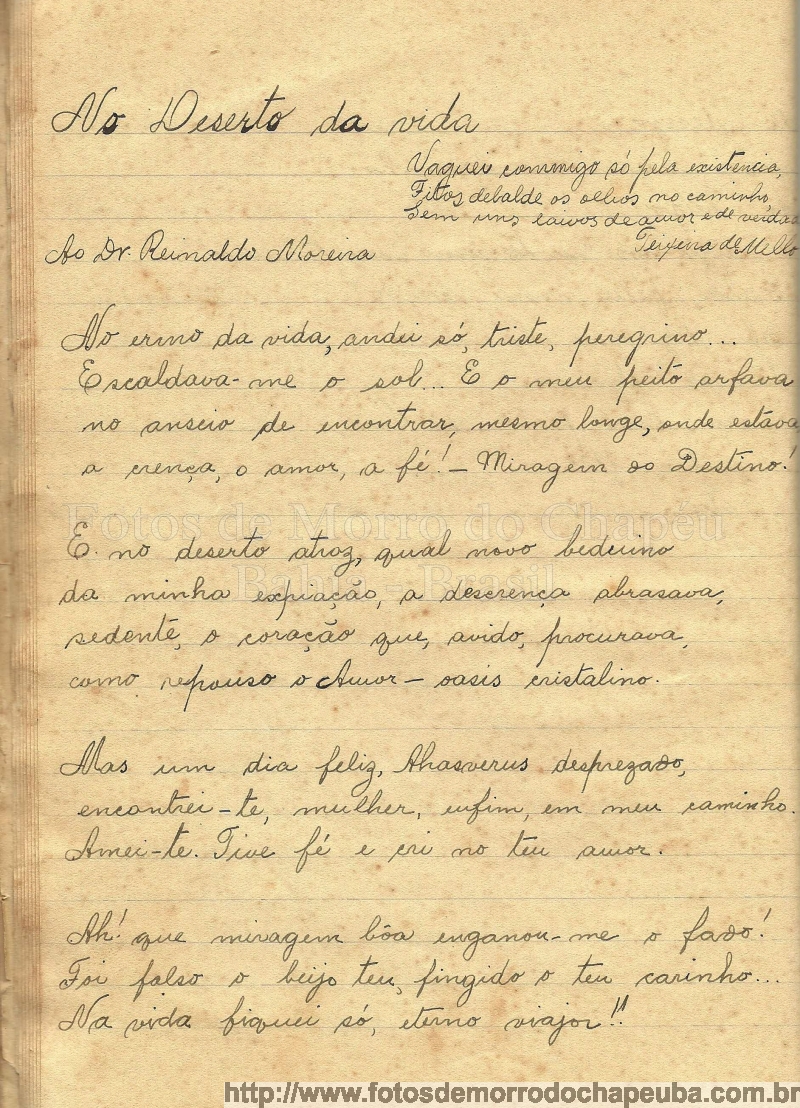 No Deserto da vida
Vaguei commigo só pela existencia,
Fitos debalde os olhos no caminho,
Sem uns laivos de amor e de
Teixeira de Mello
Ao Dr. Reinaldo Moreira
No ermo da vida, andei só, triste, peregrino...
Escaldava-me o sol... E o meu peito arfava
no anseio de encontrar, mesmo longe, onde estava
a crença, o amor, a fé! - Miragem do Destino!
E no deserto atroz, qual novo beduino
da minha expiação, a descrença abrasava,
sedente, o coração que, avido, procurava,
como repouso o Amor - oasis cristalino.
Mas um dia feliz, Ahasverus desprezado,
encontrei-te, mulher, enfim, em meu caminho.
Amei-te. Tive fé e cri no teu amor.
Ah! que miragem bôa enganou-me o fado!
Foi falso o beijo teu, fingido o teu carinho...
Na vida fiquei só, eterno viajor!!
Fotos de Morro do Chapéu
Bahia - Brasil
http://www.fotosdemorrodochapeuba.com.br